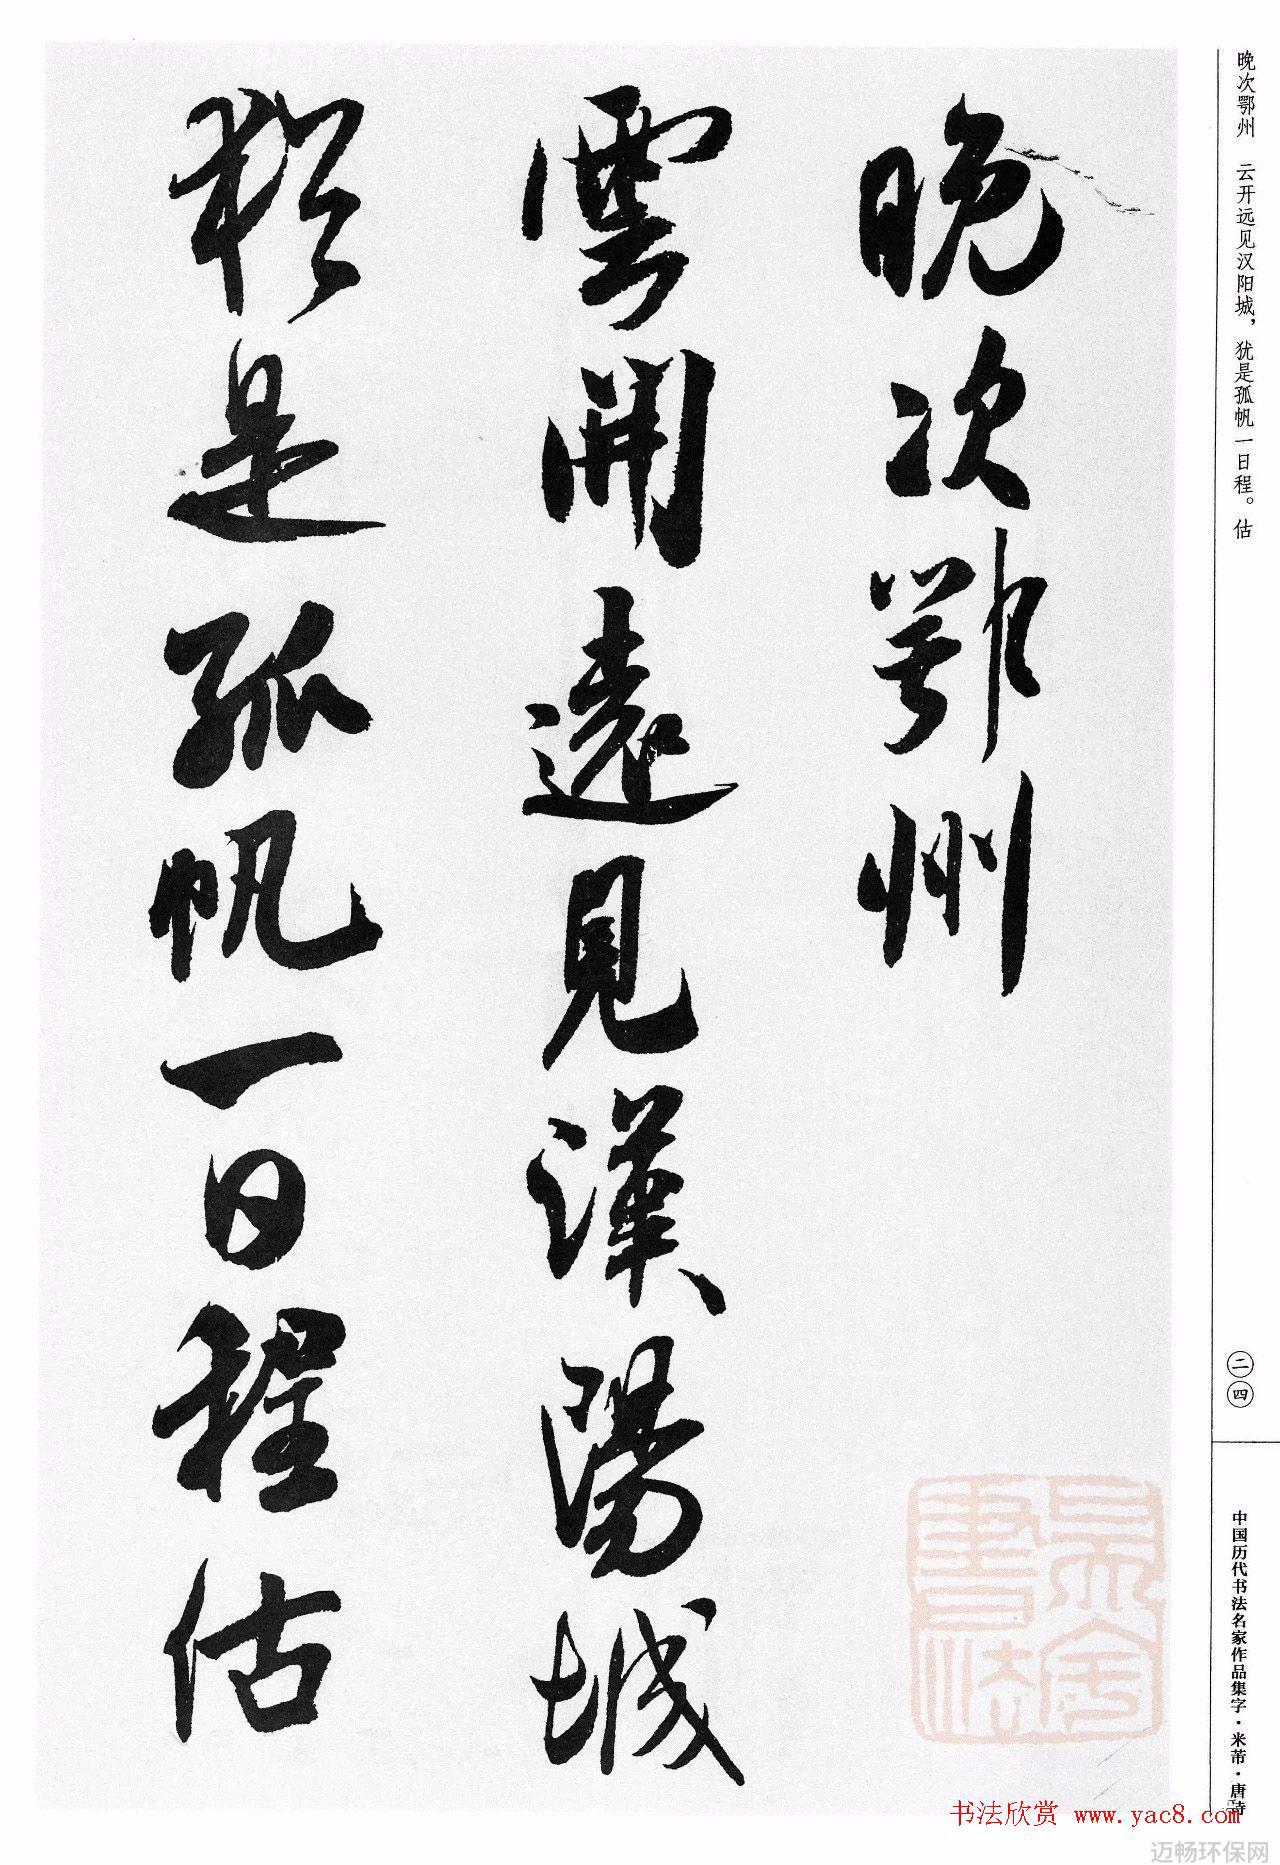 晚次鄂州　云开远见汉阳城，犹是孤帆一日程。估
晚次鄂州
雲開遠見漢陽城
猶是孤帆一日程估
二四
中国历代书法名家作品集字·米芾·唐诗
书法欣赏 www.yac8.com
迈畅环保网